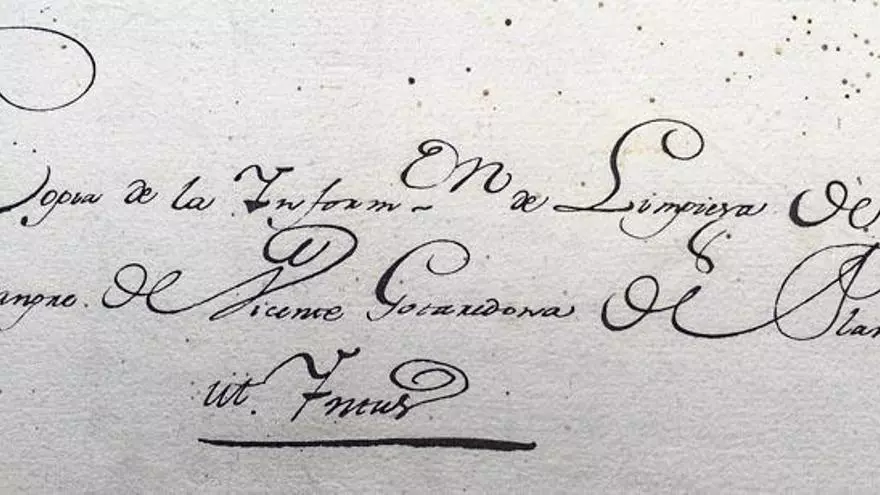 Copia de la Inform.en de Limpieza de
sangre. de Vicente Gotaredona de
ut. Intus